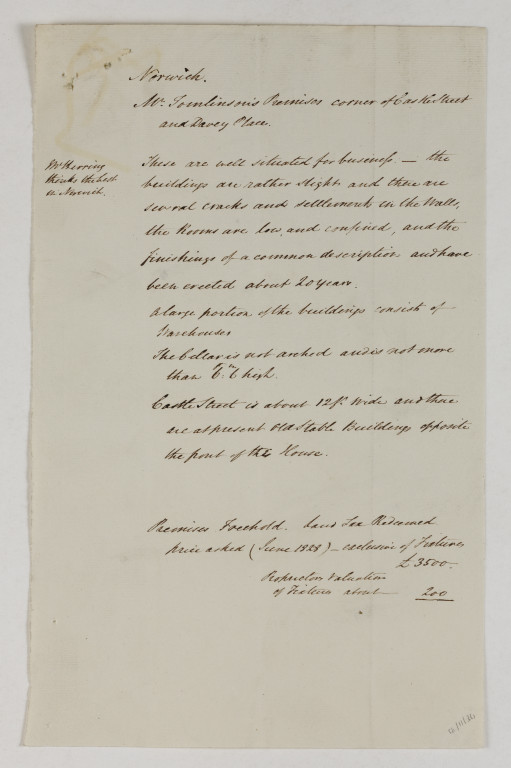 Norwich.
Mr. Tomlinson's Premises corner of Castle Street
and Davey Place.
Mr Herring
thinks the best
in Norwich.
These are well situated for business — the
buildings are rather slight and there are
several cracks and settlements in the Walls,
the Rooms are low, and confined, and the
finishings of a common description and have
been erected about 20 years.
A large portion of the buildings consist of
Warehouses
The Cellar is not arched and is not more
than high.
Castle Street is about 12 ft. Wide and there
are at present Old Stable Buildings opposite
the front of the House.
Premises Freehold. Land Tax Redeemed
price asked (June 1828) — exclusive of Fixtures
£3500.
Proprietors Valuation
of Fixtures about 200